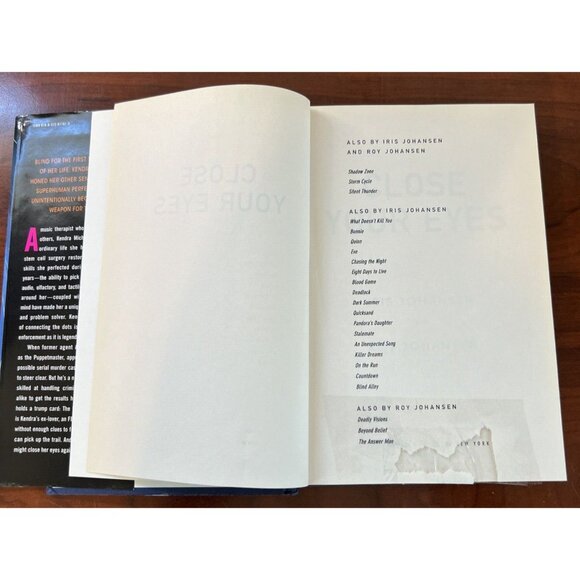 BLIND FOR THE FIRST
OF HER LIFE, KEND
HONED HER OTHER SEN
SUPERHUMAN PERFE
UNINTENTIONALLY BEC
WEAPON FOR
A music therapist who
others, Kendra Mic
ordinary life she
stem cell surgery restor
skills she perfected durin
years—the ability to pick
audio, olfactory, and tactile
around her—coupled wi
mind have made her a uniqu
and problem solver. Kend
of connecting the dots is
enforcement as it is legend
When former agent
as the Puppetmaster, app
possible serial murder cas
to steer clear. But he's a m
skilled at handling crimin
alike to get the results h
holds a trump card: The
is Kendra's ex-lover, an F
without enough clues to f
can pick up the trail. And
might close her eyes again
CLOSE
YOUR EYES
ALSO BY IRIS JOHANSEN
AND ROY JOHANSEN
Shadow Zone
Storm Cycle
Silent Thunder
ALSO BY IRIS JOHANSEN
What Doesn't Kill You
Bonnie
Quinn
Eve
Chasing the Night
Eight Days to Live
Blood Game
Deadlock
Dark Summer
Quicksand
Pandora's Daughter
Stalemate
An Unexpected Song
Killer Dreams
On the Run
Countdown
Blind Alley
ALSO BY ROY JOHANSEN
Deadly Visions
Beyond Belief
The Answer Man
EW YORK